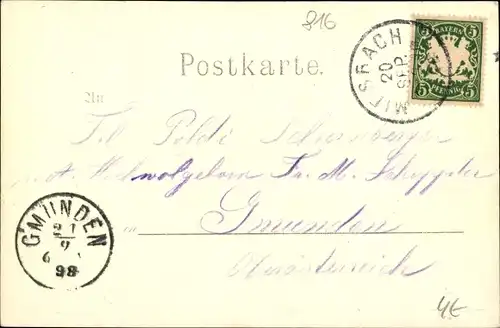 816
BAYERN
5 5
PFENNIG
MIESBACH
20
SEP.
Postkarte.
An
Frl. Poldi
Hochwolgeborn Fr. M.
in Gmunden
Oberösterreich
GMUNDEN
21
9
6
98
4€